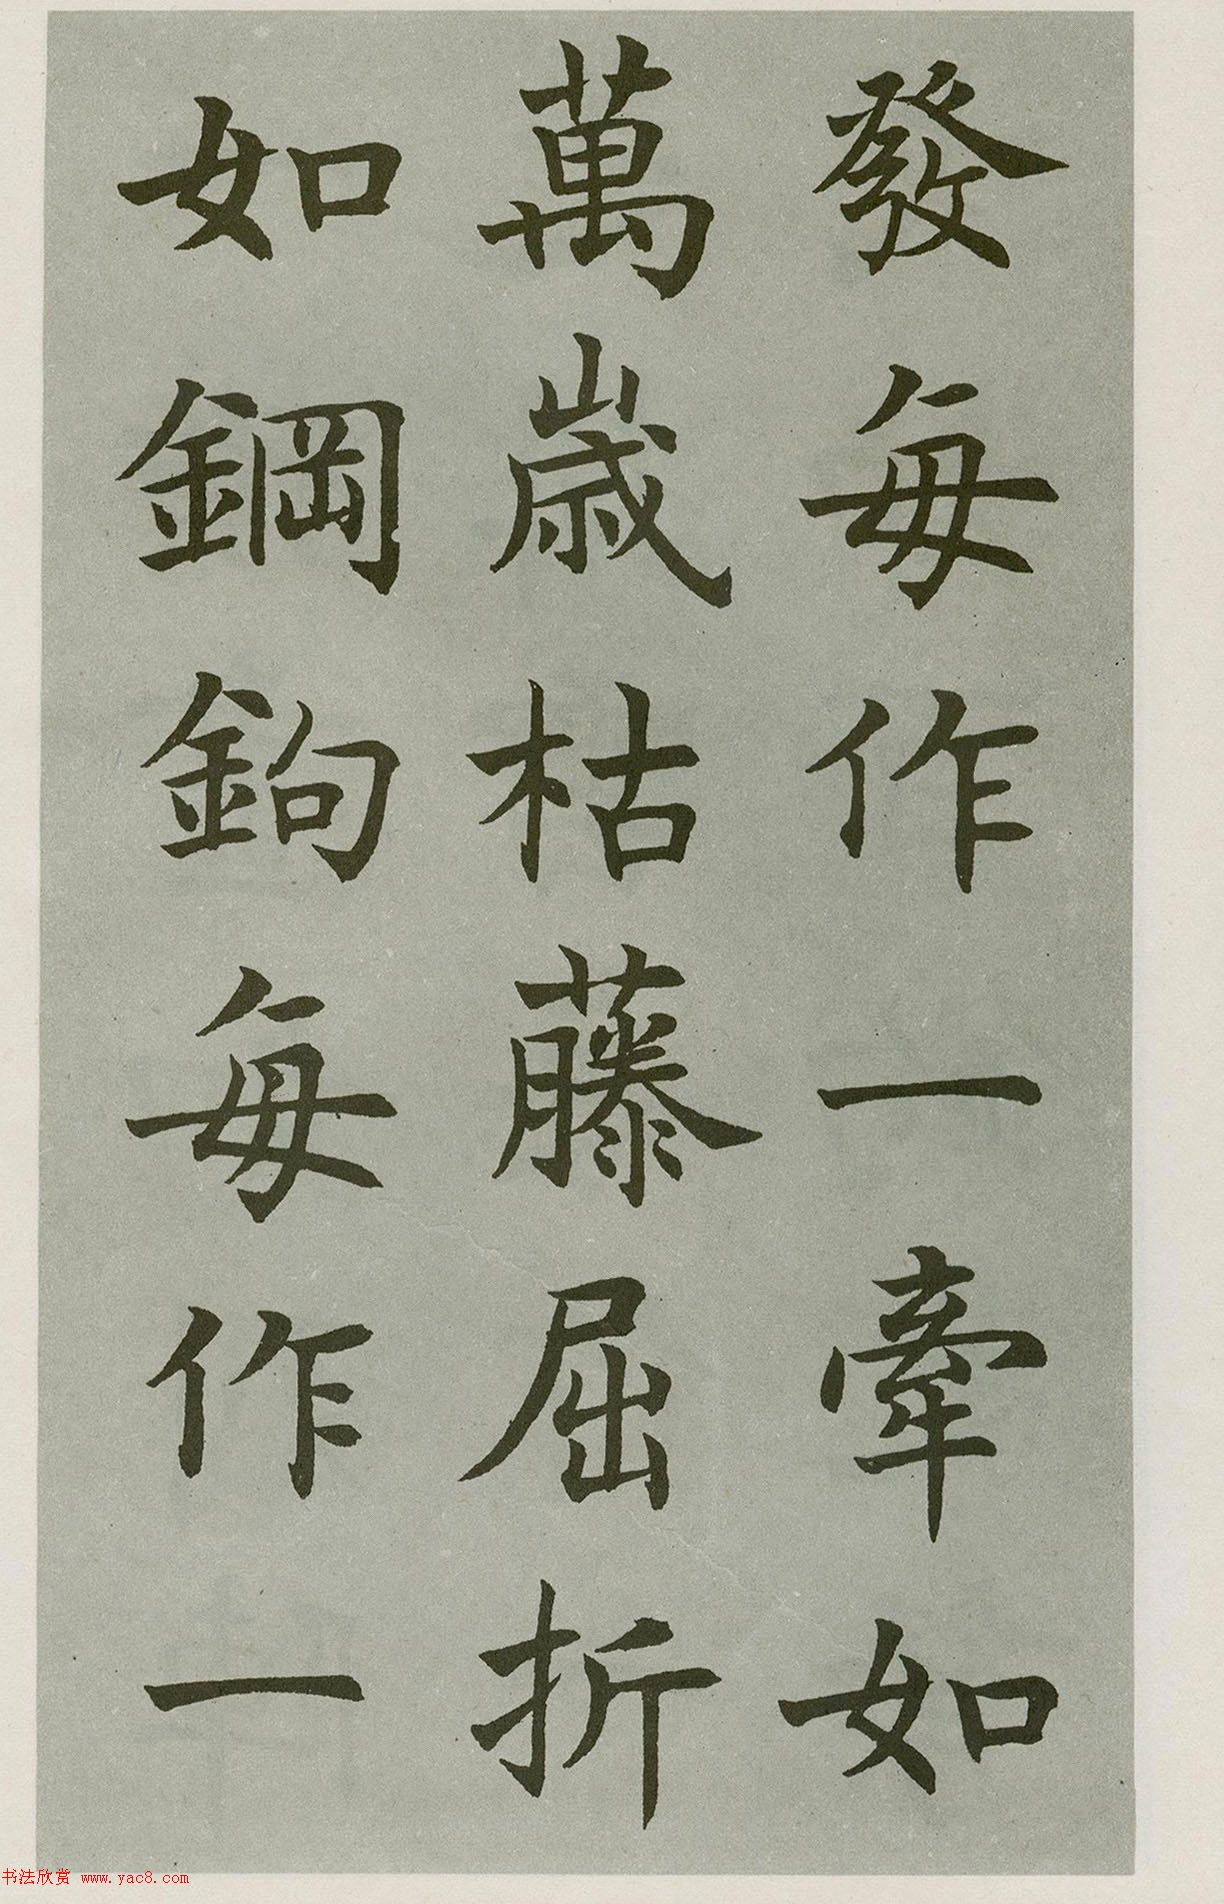 發每作一牽如
萬歲枯藤屈折
如鋼鉤每作一
书法欣赏 www.yac8.com